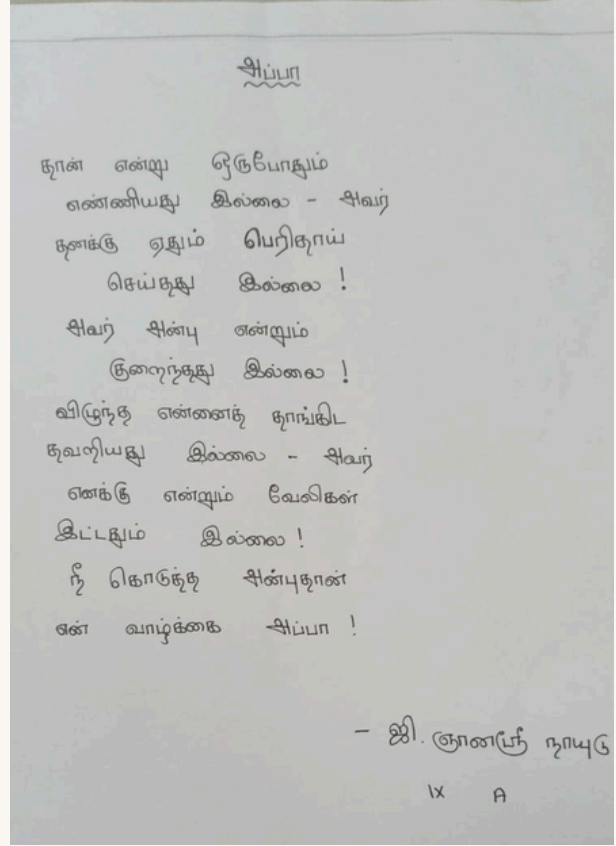 அப்பா
தான் என்று ஒருபோதும்
எண்ணியது இல்லை - அவர்
தனக்கு ஏதும் பெரிதாய்
செய்தது இல்லை !
அவர் அன்பு என்றும்
குறைந்தது இல்லை !
விழுந்த என்னைத் தாங்கிட
தவறியது இல்லை - அவர்
எனக்கு என்றும் வேலிகள்
இட்டதும் இல்லை !
நீ கொடுத்த அன்புதான்
என் வாழ்க்கை அப்பா !
- ஜி. ஞானஸ்ரீ நாயுடு
IX A